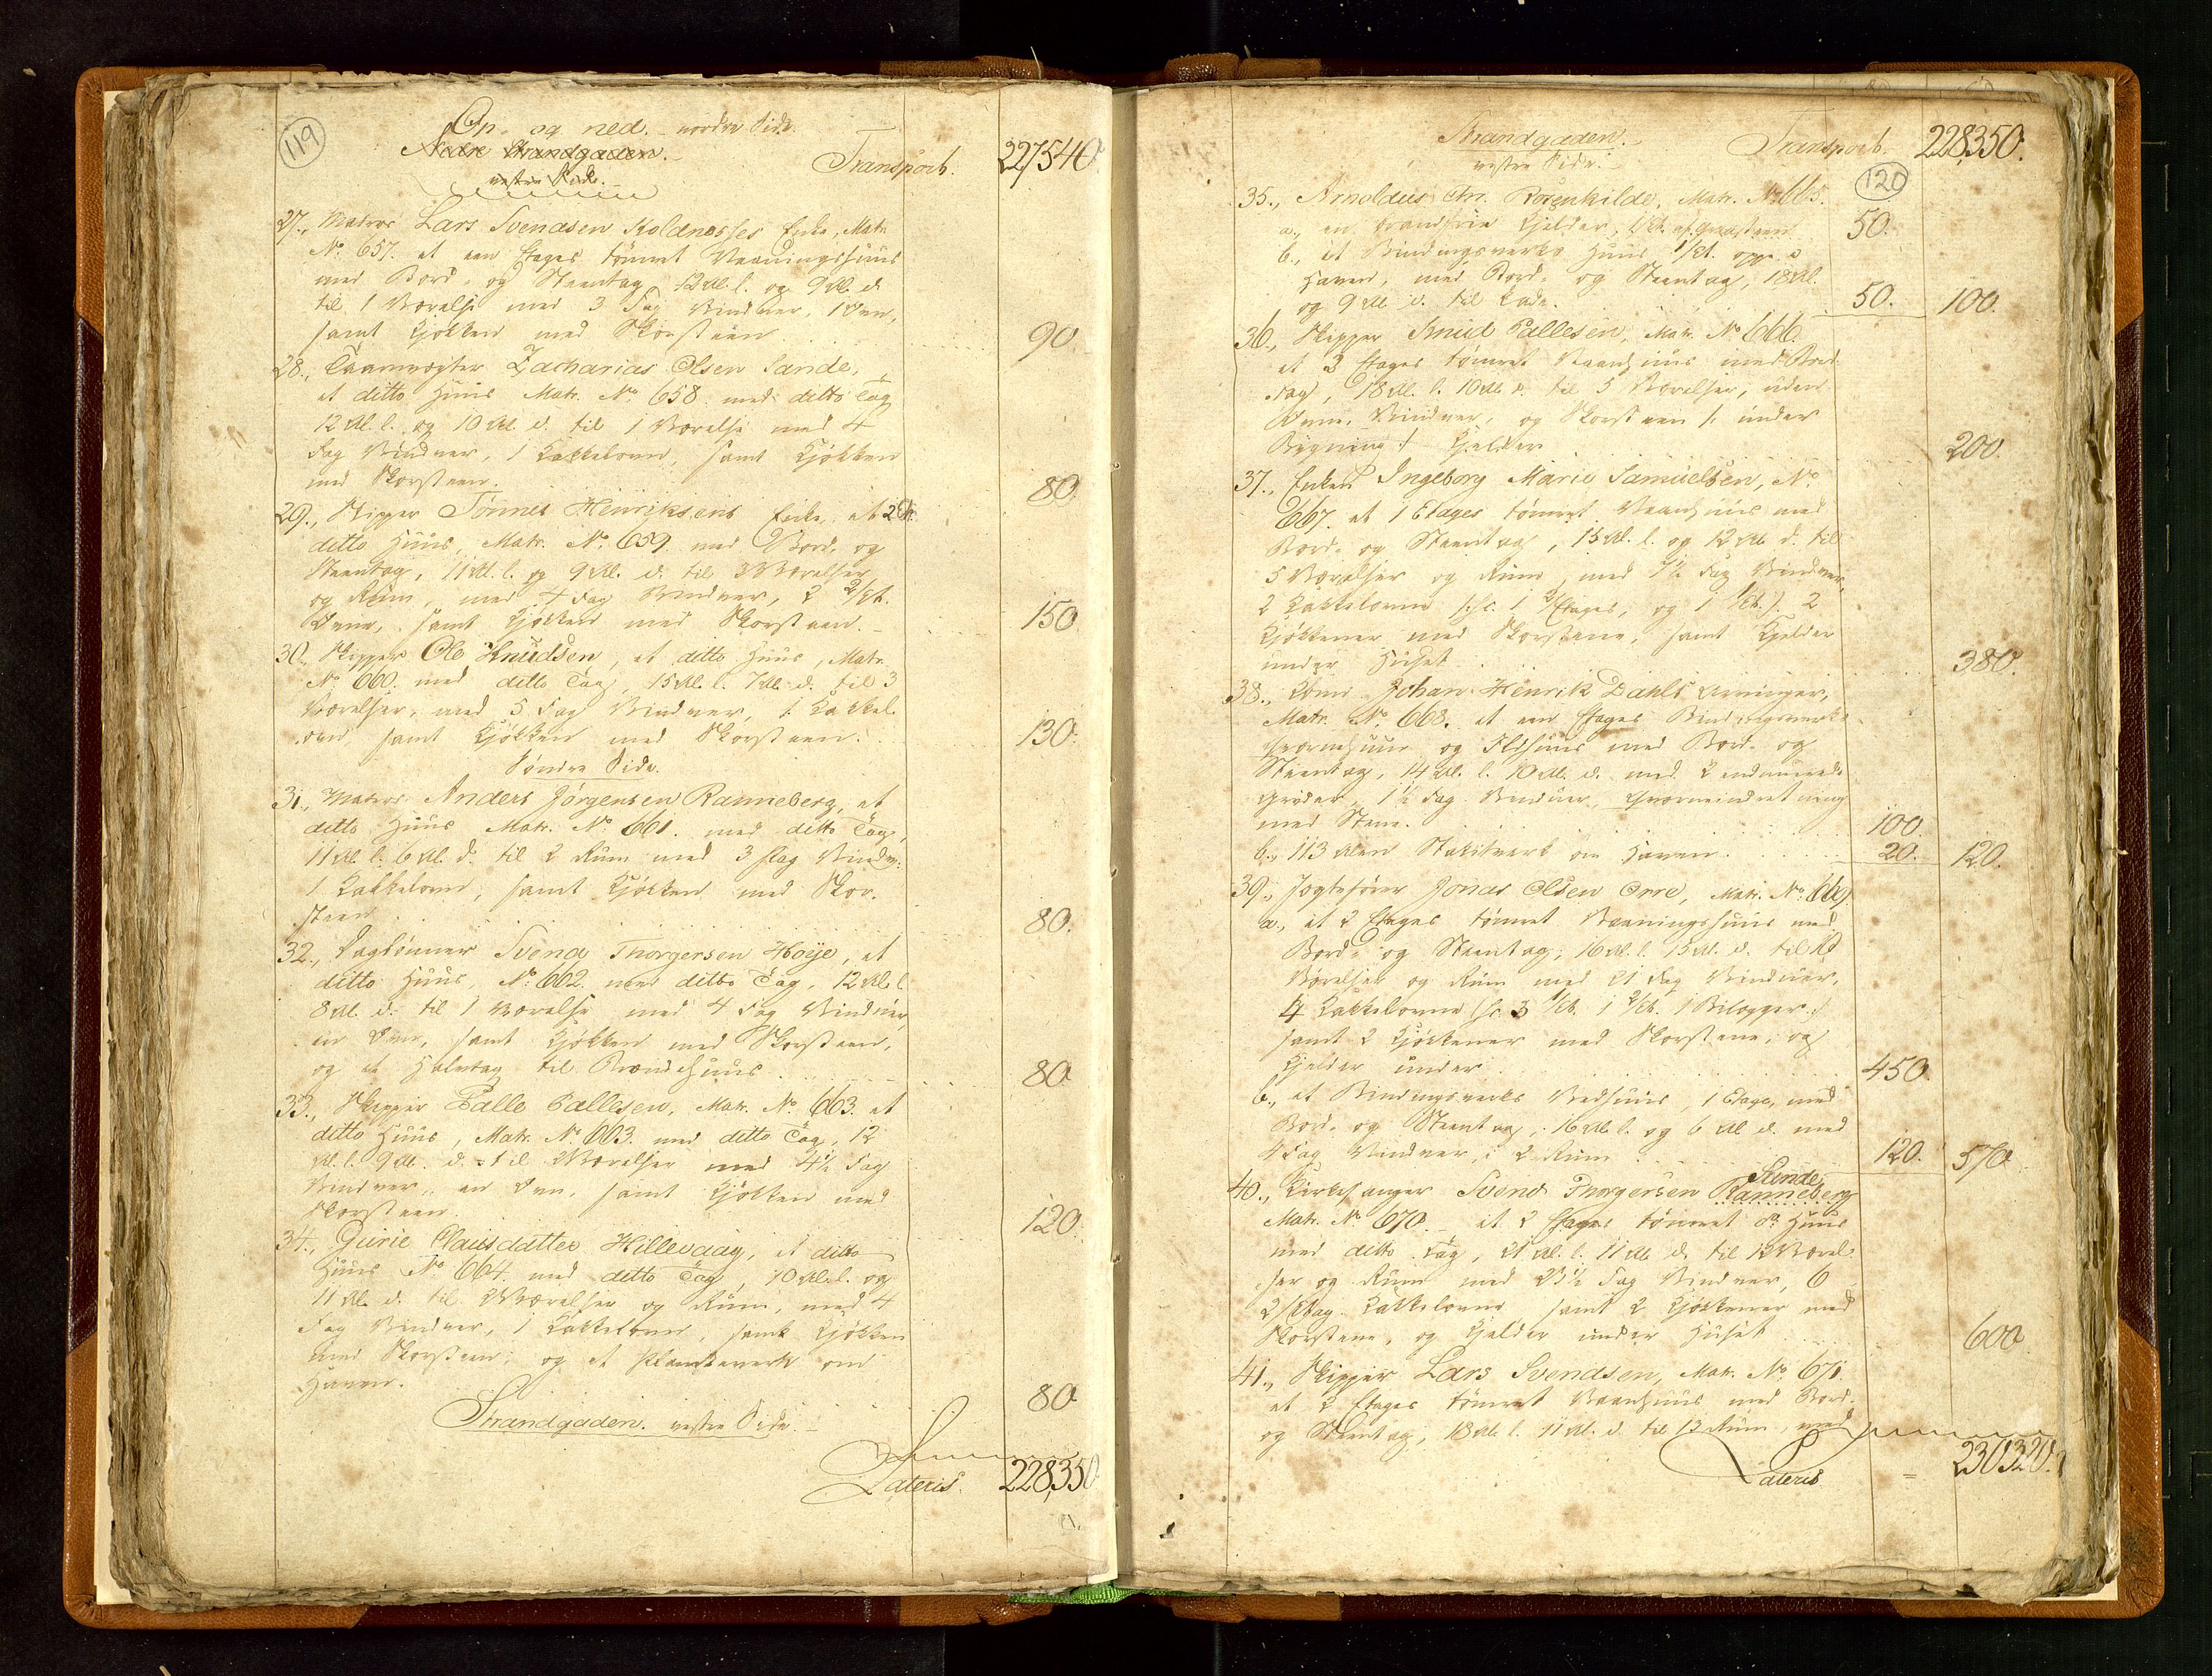 119
Op- og ned. nordre Side.
Nedre Strandgaden.
vestre Side.
Transport. 227540.
27., Matros Lars Svendsen Koldnæsses Enke, Matr.
No 657. et een Etages tømret Vaaningshuus
med Bord- og Steentag 12 Al. l. og 9 Al. d.
til 1 Værelse med 3 Fag Vinduer, 1 Ovn,
samt Kjøkken med Skorsteen 90.
28., Taarnvægter Zacharias Olsen Sande,
et ditto Huus Matr. No 658. med ditto Tag
12 Al. l. og 10 Al. d. til 1 Værelse med 4
Fag Vinduer, 1 Kakkelovn, samt Kjøkken
med Skorsteen. 80.
29., Skipper Tønnes Henriksens Enke, et 2 Et.
ditto Huus, Matr. No. 659 med Bord- og
Steentag, 11 Al. l. og 9 Al. d. til 3 Værelser
og Rum, med 7 Fag Vinduer, 2 2/Et.
Ovne, samt Kjøkken med Skorsteen. 150.
30., Skipper Ole Knudsen, et ditto Huus, Matr.
No 660. med ditto Tag, 15 Al. l. 7 Al. d. til 3
Værelser, med 5 Fag Vinduer, 1 Kakkel-
ovn samt Kjøkken med Skorsteen. 130.
Søndre Side.
31., Matros Anders Jørgensen Ranneberg, et
ditto Huus Matr. No. 661. med ditto Tag,
11 Al. l. 6 Al. d. til 2 Rum med 3 Fag Vindu.
1 Kakkelovn, samt Kjøkken med Skor-
steen 80.
32., Daglønner Svend Thorgersen Høye, et
ditto Huus, No. 662. med ditto Tag, 12 Al. l
8 Al. d. til 1 Værelse med 4 Fag Vinduer,
en Ovn, samt Kjøkken med Skorsteen,
og et Halvtag til Brændehuus 80
33., Skipper Palle Pallesen, Matr. No. 663. et
ditto Huus, Matr. No 663. med ditto Tag, 12
Al. l. 9 Al. d. til 2 Værelser med 4½ Fag
Vinduer, en Ovn, samt Kjøkken med
Skorsteen. 120.
34., Gurie Clausdatter Hillevaag, et ditto
Huus No 664. med ditto Tag, 10 Al. l. og
11 Al. d. til 2 Værelser og Rum, med 4
Fag Vinduer, 1 Kakkelovn, samt Kjøkken
med Skorsteen; og et Plankeværk om
Haven. 80
Strandgaden. vestre Side.
Lateris. 228,350.
Strandgaden.
vestre Side.
Transport. 228,350.
120
35., Arnoldus Chr. Rosenkilde, Matr. No 665.
a., en brandfrie Kjelder, 50.
b., et Bindingsverks Huus 1/Et. oppe i
Haven, med Bord- og Steentag, 18 Al.
og 9 Al. d. til Lade. 50. 100.
36., Skipper Knud Pallesen, Matr. No 666.
et 3 Etages tømret Vaanhuus med Bord-
tag, 18 Al. l. 10 Al. d. til 5 Værelser, uden
Ovne, Vinduer, og Skorsteen /: under
Bygning :/ Kjelder 200.
37., Enken Ingeborg Marie Samuelsen, No
667. et 1 Etages tømret Vaanhuus med
Bord- og Steentag, 15 Al. l. og 12 Al. d. til
5 Værelser og Rum, med 7½ Fag Vinduer,
2 Kakkelovne /: sc. 1 2/Etages, og 1 1/Et. :/. 2
Kjøkkener med Skorstene, samt Kjelder
under Huset. 380.
38., Kbmd. Johan Henrik Dahls Arvinger,
Matr. No. 668. et een Etages Bindingsverks
og Ildhuus med Bord- og
Steentag, 14 Al. l. 10 Al. d. med 2 indmurede
Gryder, 1½ Fag Vinduer,
med Steen. 100.
b., 113 Alen Stakitverk om Haven. 20. 120.
39., Jagtefører Jonas Olsen Orre, Matr. No. 669
a., et 2 Etages tømret Vaaningshuus med
Bord- og Steentag, 16 Al. l. 15 Al. d. til 12
Værelser og Rum med 21 Fag Vinduer,
4 Kakkelovne (sc. 3 1/Et. 1 2/Et. 1 Bilægger :/
samt 2 Kjøkkener med Skorstene, og
Kjelder under 450.
b., et Bindingsverks Vedhuus, 1 Etage, med
Bord- og Steentag, 16 Al. l. og 6 Al. d. med
4 Fag Vinduer, i 2 Rum 120. 570.
Sunde
40., Kirkesanger Svend Thorgersen Ranneberg
Matr. No 670. et 2 Etages tømret do Huus
med ditto Tag, 21 Al. l. 11 Al. d. til 12 Værel-
ser og Rum med 23½ Fag Vinduer, 6
2/Etag. Kakkelovne samt 2 Kjøkkener med
Skorstene, og Kjelder under Huset 600
41., Skipper Lars Svendsen, Matr. No. 671.
et 2 Etages tømret Vaanhuus med Bord-
og Steentag, 18 Al. l. 11 Al. d. til 13 Rum, med
Lateris. 230320.